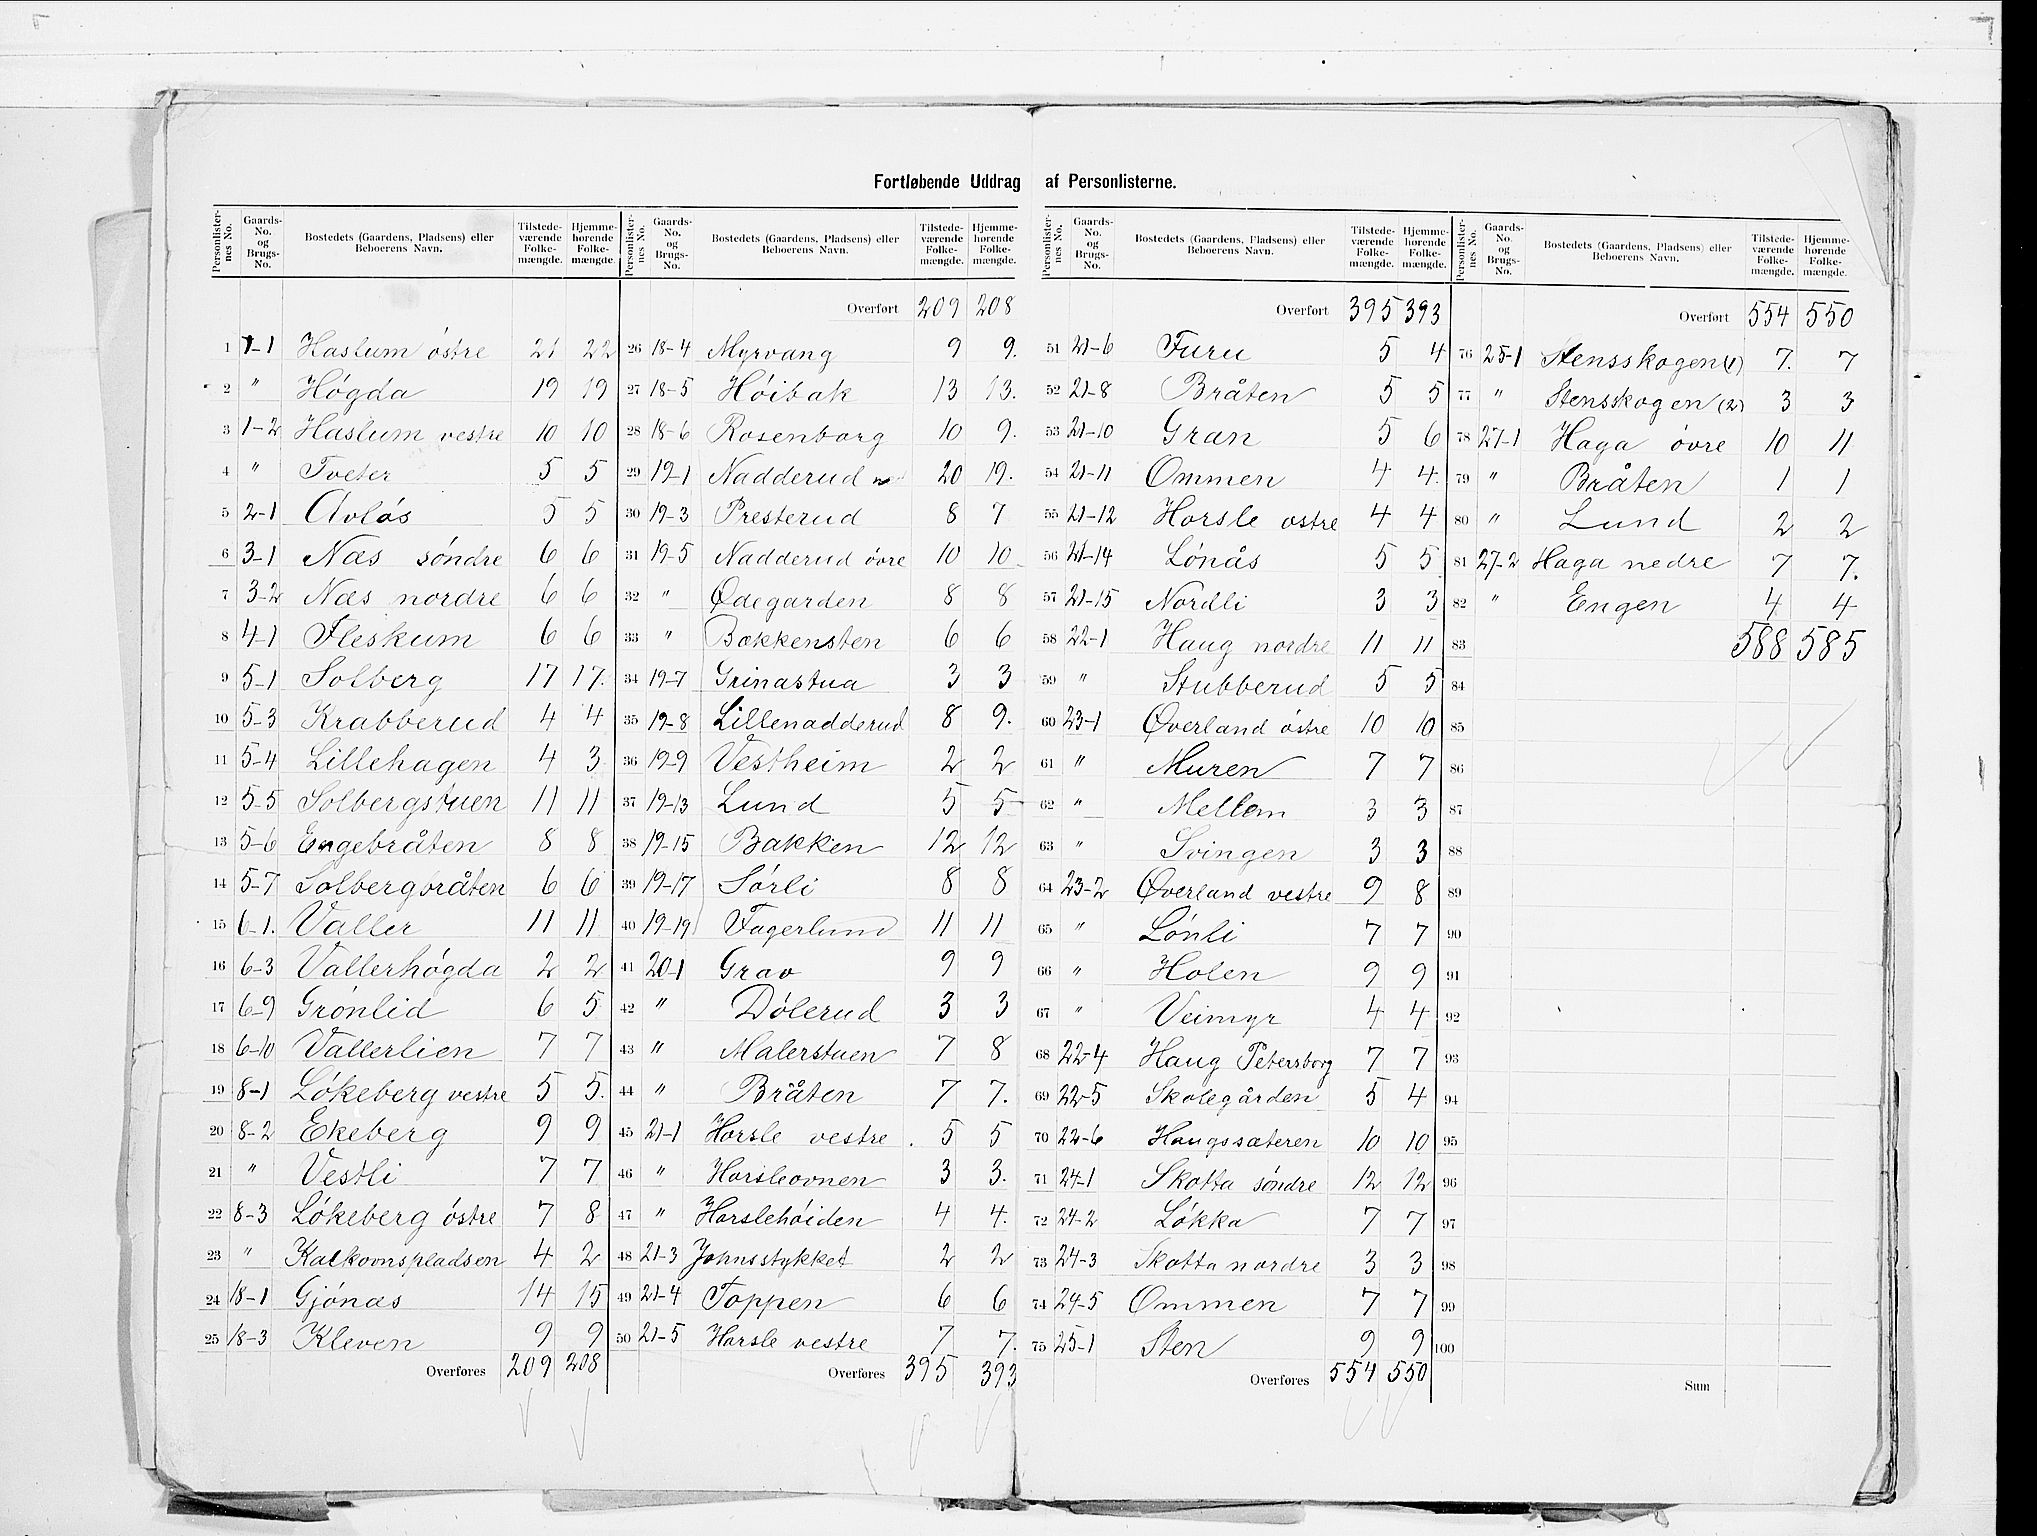 Fortløbende Uddrag af Personlisterne.
Personlisternes No. | Gaards-No. og Brugs-No. | Bostedets (Gaardens, Pladsens) eller Beboerens Navn. | Tilstedeværende Folkemængde. | Hjemmehørende Folkemængde.
1 1-1 Haslum östre 21 22
2 " Högda 19 19
3 1-2 Haslum vestre 10 10
4 " Tveter 5 5
5 2-1 Avlös 5 5
6 3-1 Næs söndre 6 6
7 3-2 Næs nordre 6 6
8 4-1 Fleskum 6 6
9 5-1 Solberg 17 17.
10 5-3 Krabberud 4 4
11 5-4 Lillehagen 4 3
12 5-5 Solbergstuen 11 11
13 5-6 Engebråten 8 8
14 5-7 Solbergbråten 6 6
15 6-1. Valler 11 11
16 6-3 Vallerhögda 2 2
17 6-9 Grönlid 6 5
18 6-10 Vallerlien 7 7
19 8-1 Lökeberg vestre 5 5.
20 8-2 Ekeberg 9 9
21 " Vestli 7 7
22 8-3 Lökeberg östre 7 8
23 " Kalkovnspladsen 4 2
24 18-1 Gjönæs 14 15
25 18-3 Kleven 9 9
Overføres 209 208
Personlisternes No. | Gaards-No. og Brugs-No. | Bostedets (Gaardens, Pladsens) eller Beboerens Navn. | Tilstedeværende Folkemængde. | Hjemmehørende Folkemængde.
Overført 209 208
26 18-4 Myrvang 9 9.
27 18-5 Höibak 13 13.
28 18-6 Rosenborg 10 9.
29 19-1 Nadderud n 20 19.
30 19-3 Presterud 8 7
31 19-5 Nadderud övre 10 10
32 " Ødegarden 8 8
33 " Bakkensten 6 6
34 19-7 Grinastua 3 3
35 19-8 Lillenadderud 8 9.
36 19-9 Vestheim 2 2
37 19-13 Lund 5 5
38 19-15 Bakken 12 12
39 19-17 Sörli 8 8
40 19-19 Fagerlund 11 11
41 20-1 Grav 9 9
42 " Dölerud 3 3
43 " Malerstuen 7 8
44 " Bråten 7 7.
45 21-1 Horsle vestre 5 5
46 " Horsleovnen 3 3.
47 " Horslehöiden 4 4.
48 21-3 Johnsstykket 2 2
49 21-4 Toppen 6 6
50 21-5 Horsle vestre 7 7.
Overføres 395 393
Personlisternes No. | Gaards-No. og Brugs-No. | Bostedets (Gaardens, Pladsens) eller Beboerens Navn. | Tilstedeværende Folkemængde. | Hjemmehørende Folkemængde.
Overført 395 393
51 21-6 Furu 5 4
52 21-8 Bråten 5 5
53 21-10 Gran 5 6
54 21-11 Ommen 4 4
55 21-12 Horsle ostre 4 4
56 21-14 Lönås 5 5
57 21-15 Nordli 3 3
58 22-1 Haug nordre 11 11
59 " Stubberud 5 5
60 23-1 Øverland östre 10 10
61 " Muren 7 7
62 " Mellom 3 3
63 " Svingen 3 3
64 23-2 Øverland vestre 9 8
65 " Lönli 7 7
66 " Holen 9 9
67 " Veimyr 4 4
68 22-4 Haug Petersborg 7 7
69 22-5 Skolegården 5 4
70 22-6 Haugssæteren 10 10
71 24-1 Skotta söndre 12 12
72 24-2 Lökka 7 7
73 24-3 Skotta nordre 3 3
74 24-5 Ommen 7 7
75 25-1 Sten 9 9
Overføres 554 550
Personlisternes No. | Gaards-No. og Brugs-No. | Bostedets (Gaardens, Pladsens) eller Beboerens Navn. | Tilstedeværende Folkemængde. | Hjemmehørende Folkemængde.
Overført 554 550
76 25-1 Stensskogen (1) 7. 7
77 " Stensskogen (2) 3 3
78 27-1 Haga övre 10 11
79 " Bråten 1 1
80 " Lund 2 2
81 27-2 Haga nedre 7 7.
82 " Engen 4 4
83 588 585
84
85
86
87
88
89
90
91
92
93
94
95
96
97
98
99
100
Sum